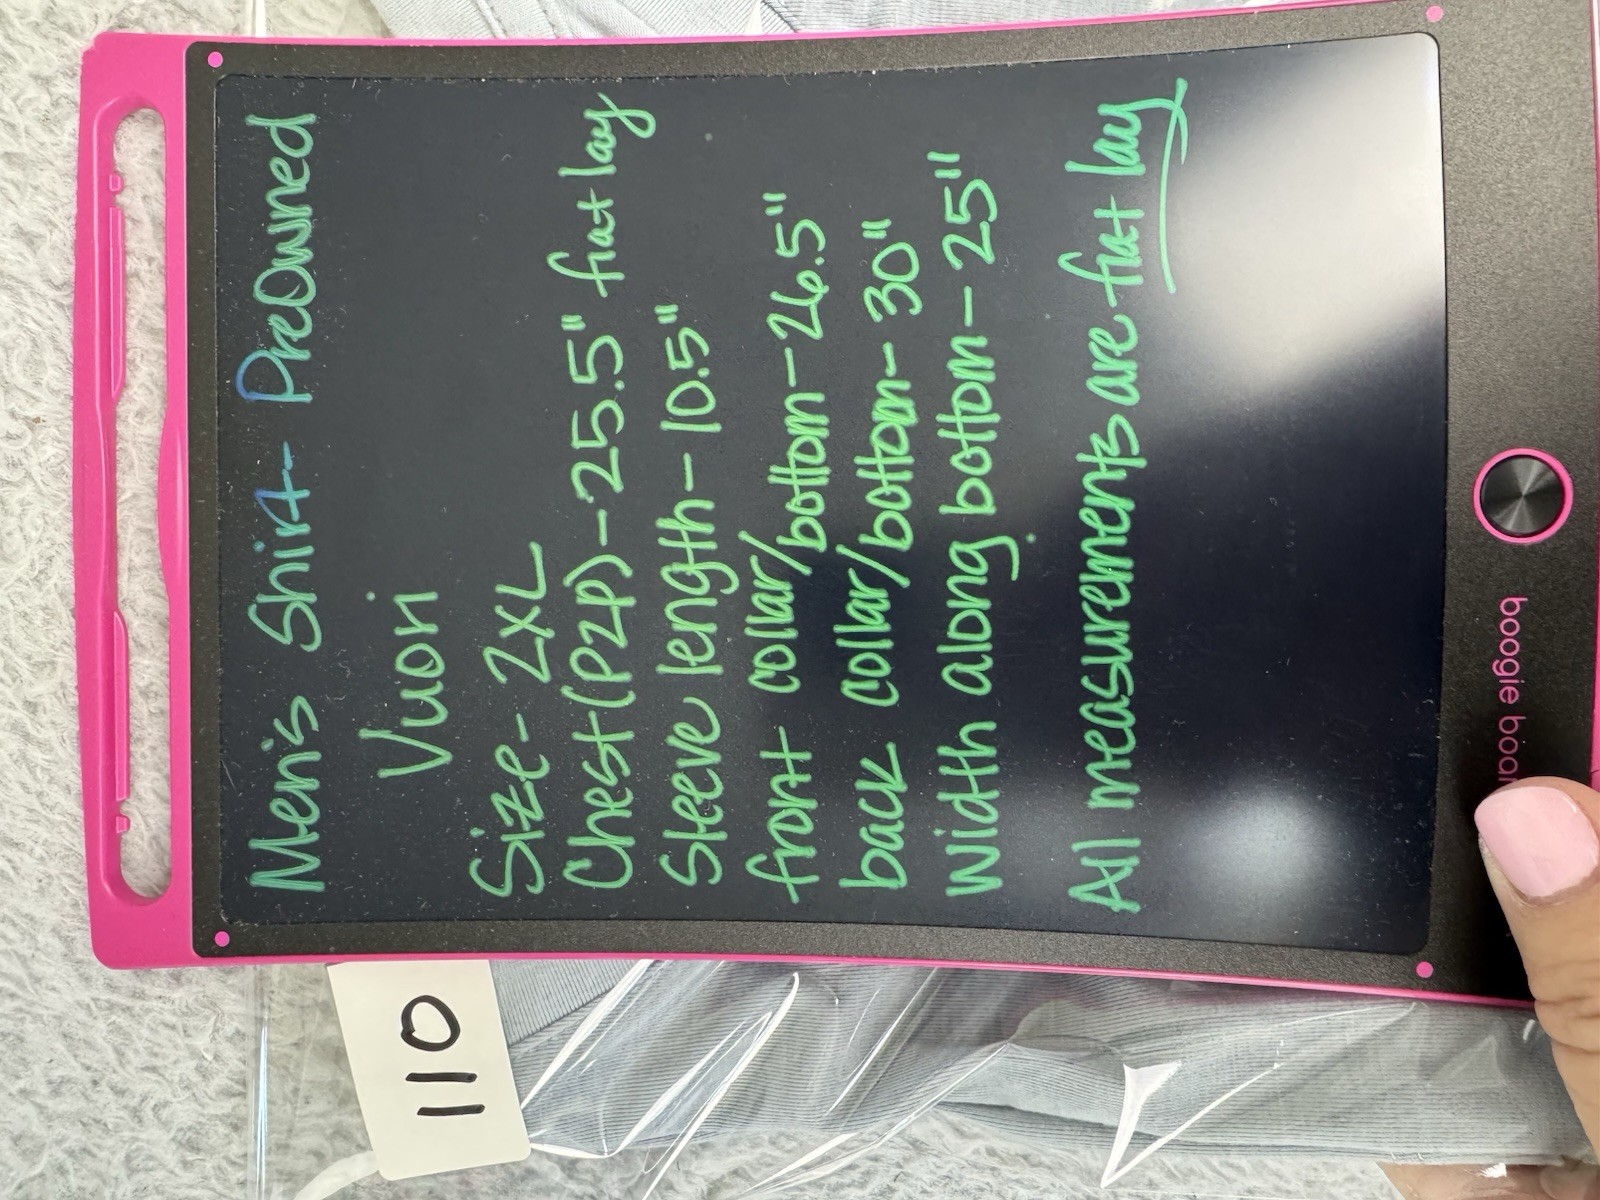 Men's Shirt- PreOwned
Vuori
Size- 2XL
Chest(P2P)-25.5" flat lay
Sleeve length- 10.5"
front collar/bottom-26.5"
back collar/bottom- 30"
Width along bottom- 25"
All measurements are flat lay
boogie boar
110